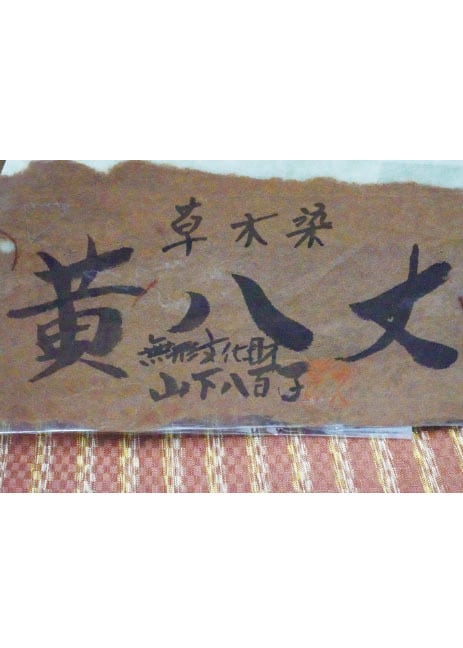 草木染
黄八丈
無形文化財
山下八百子